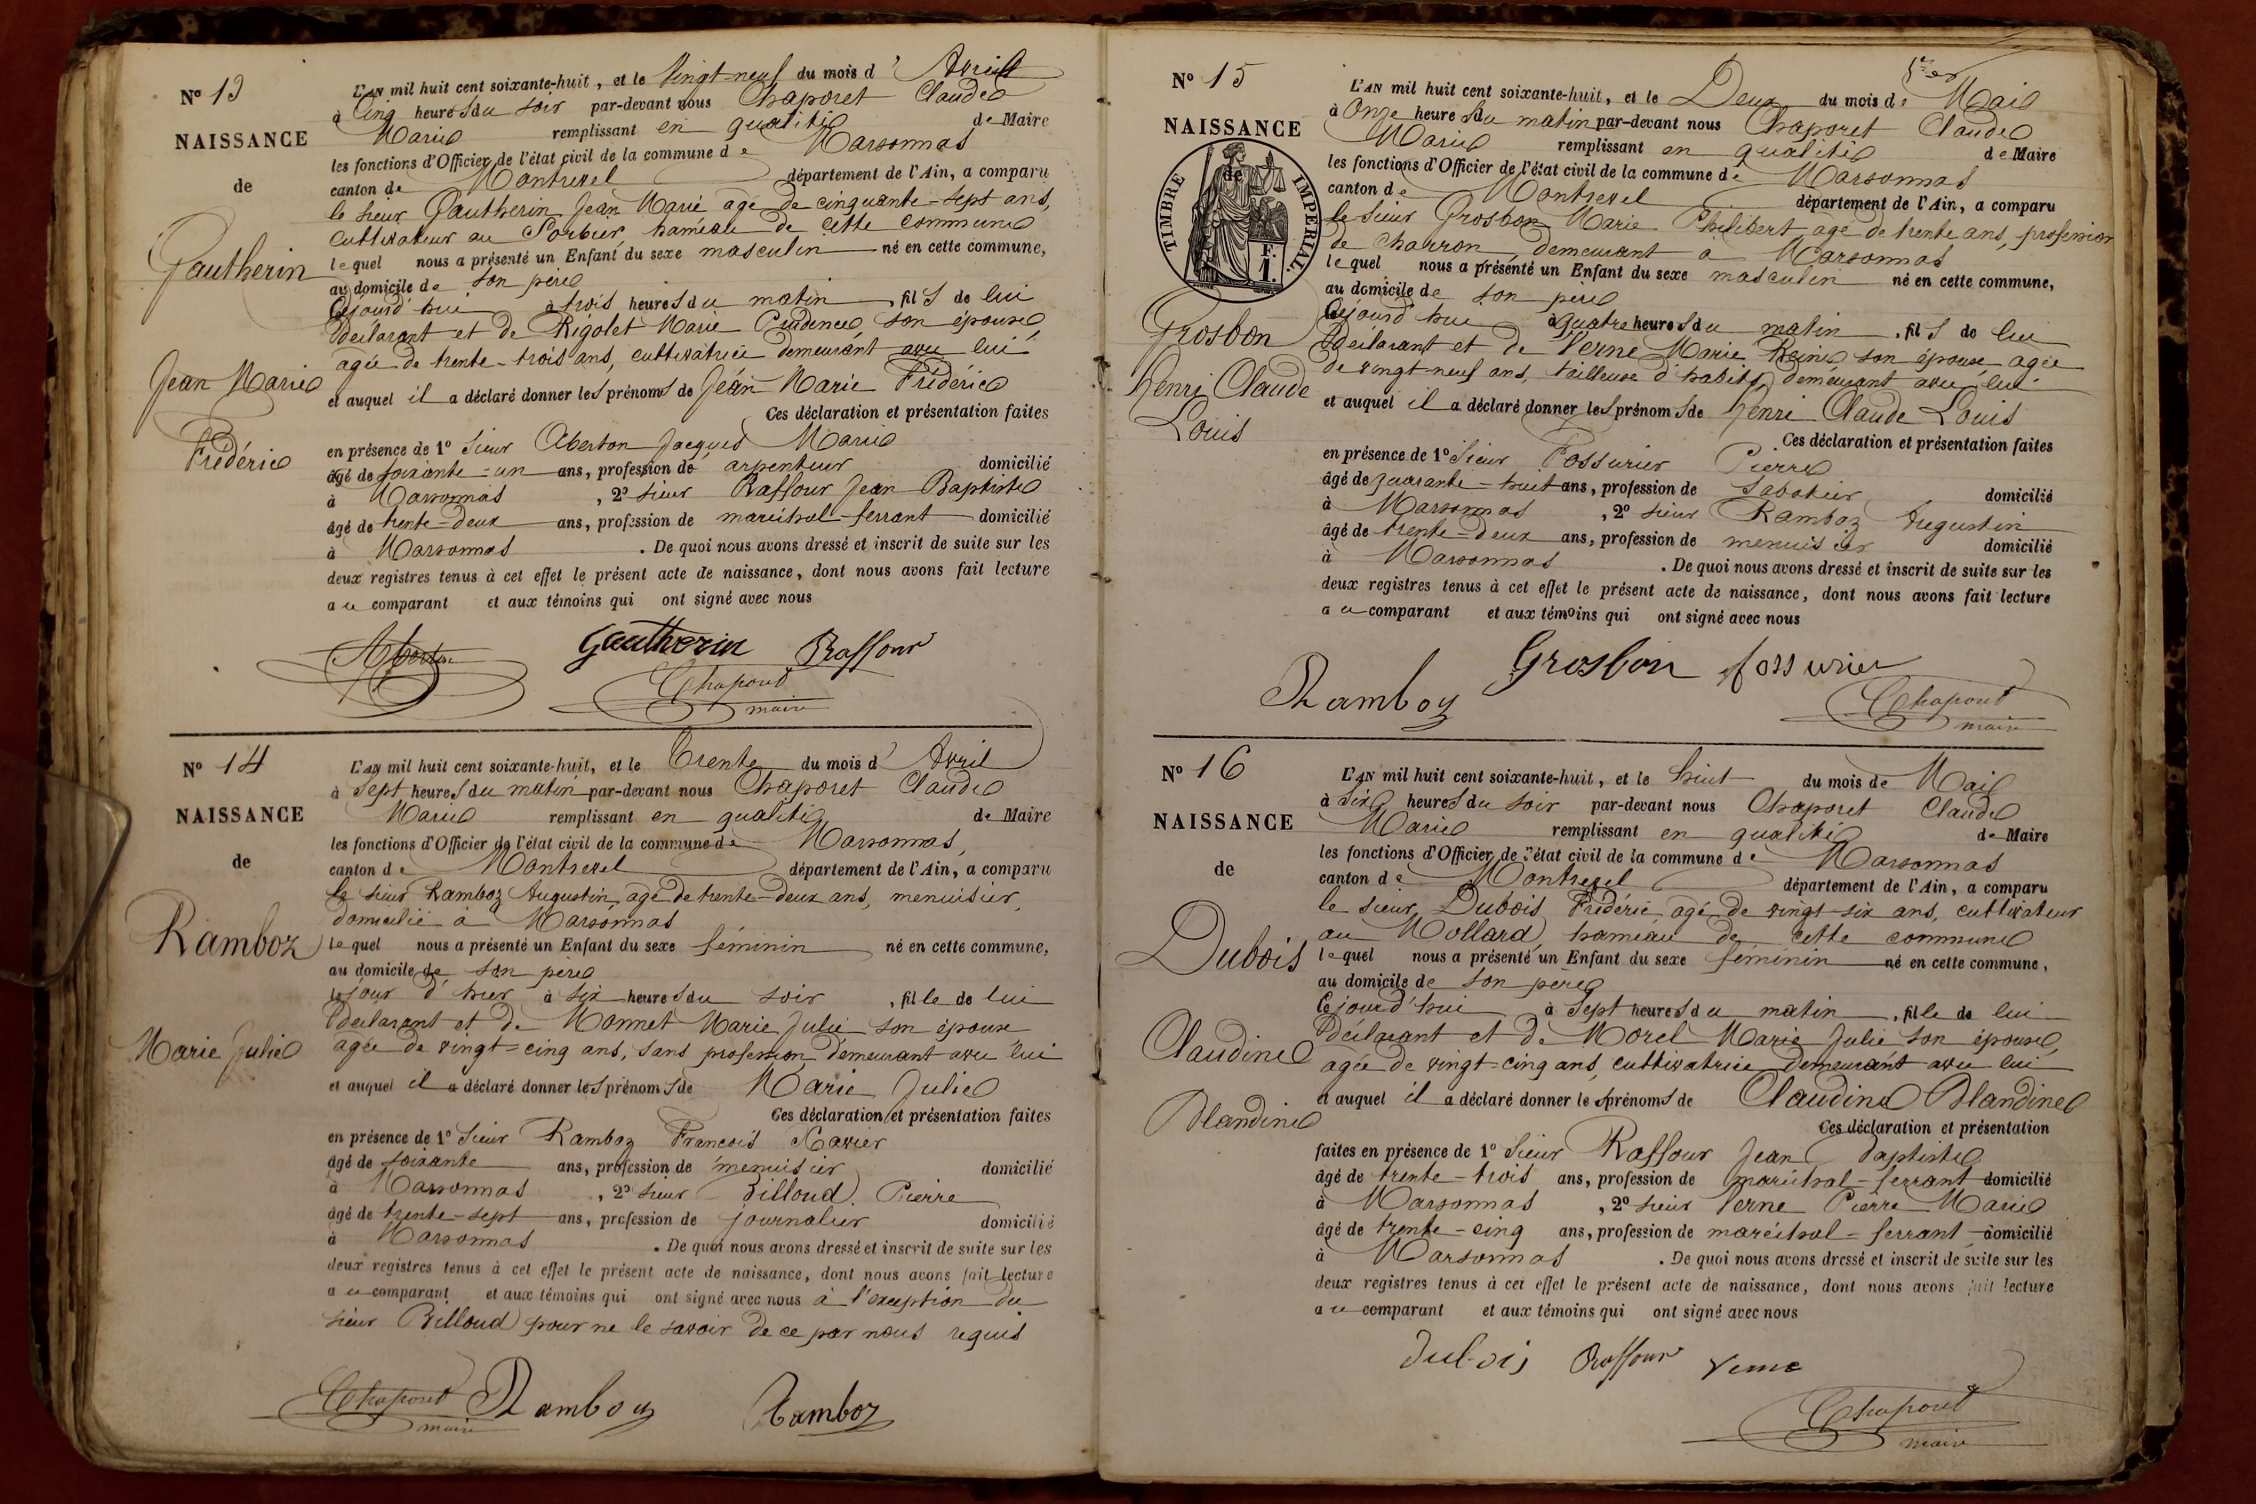 N° 13
NAISSANCE
de
Gautherin
Jean Marie
Frédéric
L'AN mil huit cent soixante-huit, et le Vingt-neuf du mois d' Avril
à Cinq heures du soir par-devant nous Chaporet Claude
Marie remplissant en qualité de Maire
les fonctions d'Officier de l'état civil de la commune de Marsonnas
canton de Montrevel département de l'Ain, a comparu
le sieur Gautherin Jean Marie agé de cinquante-sept ans,
cultivateur au Sorbier, hameau de cette commune
lequel nous a présenté un Enfant du sexe masculin né en cette commune,
au domicile de son père
Cejourd'hui à trois heures du matin, fils de lui
Déclarant et de Rigolet Marie Prudence, son épouse,
agée de trente-trois ans, cultivatrice demeurant avec lui
et auquel il a déclaré donner les prénoms de Jean-Marie Frédéric
Ces déclaration et présentation faites
en présence de 1° Sieur Aberton Jacques Marie
âgé de soixante-un ans, profession de arpenteur domicilié
à Marsonnas, 2° sieur Raffour Jean Baptiste
âgé de trente-deux ans, profession de maréchal-ferrant domicilié
à Marsonnas. De quoi nous avons dressé et inscrit de suite sur les
deux registres tenus à cet effet le présent acte de naissance, dont nous avons fait lecture
au comparant et aux témoins qui ont signé avec nous
Aberton Gautherin Raffour
Chaporet
maire
N° 14
NAISSANCE
de
Ramboz
Marie Julie
L'AN mil huit cent soixante-huit, et le Trente du mois d' Avril
à Sept heures du matin par-devant nous Chaporet Claude
Marie remplissant en qualité de Maire
les fonctions d'Officier de l'état civil de la commune de Marsonnas,
canton de Montrevel département de l'Ain, a comparu
le sieur Ramboz Augustin, agé de trente-deux ans, menuisier,
domicilié à Marsonnas
lequel nous a présenté un Enfant du sexe féminin né en cette commune,
au domicile de son père
le jour d'hier à six heures du soir, fille de lui
Déclarant et de Monnet Marie Julie son épouse
agée de vingt-cinq ans, sans profession, demeurant avec lui
et auquel il a déclaré donner les prénoms de Marie Julie
Ces déclaration et présentation faites
en présence de 1° Sieur Ramboz François Xavier
âgé de soixante ans, profession de menuisier domicilié
à Marsonnas, 2° sieur Billoud Pierre
âgé de trente-sept ans, profession de journalier domicilié
à Marsonnas. De quoi nous avons dressé et inscrit de suite sur les
deux registres tenus à cet effet le présent acte de naissance, dont nous avons fait lecture
au comparant et aux témoins qui ont signé avec nous à l'exception du
sieur Billoud pour ne le savoir de ce par nous requis
Chaporet Ramboz Ramboz
maire
N° 15
NAISSANCE
de
TIMBRE IMPERIAL
F.
1.
Grosbon
Henri Claude
Louis
L'AN mil huit cent soixante-huit, et le Deux du mois de Mai
à Onze heures du matin par-devant nous Chaporet Claude
Marie remplissant en qualité de Maire
les fonctions d'Officier de l'état civil de la commune de Marsonnas
canton de Montrevel département de l'Ain, a comparu
le sieur Grosbon Marie Philibert agé de trente ans, profession
de charron demeurant à Marsonnas
lequel nous a présenté un Enfant du sexe masculin né en cette commune,
au domicile de son père
Cejourd'hui à quatre heures du matin, fils de lui
Déclarant et de Verne Marie Reine son épouse agée
de vingt-neuf ans, tailleuse d'habits, demeurant avec lui
et auquel il a déclaré donner les prénoms de Henri Claude Louis
Ces déclaration et présentation faites
en présence de 1° Sieur Fossurier Pierre
âgé de quarante-huit ans, profession de sabotier domicilié
à Marsonnas, 2° sieur Ramboz Augustin
âgé de trente-deux ans, profession de menuisier domicilié
à Marsonnas. De quoi nous avons dressé et inscrit de suite sur les
deux registres tenus à cet effet le présent acte de naissance, dont nous avons fait lecture
au comparant et aux témoins qui ont signé avec nous
Ramboz Grosbon fossurier
Chaporet
maire
N° 16
NAISSANCE
de
Dubois
Claudine
Blandine
L'AN mil huit cent soixante-huit, et le huit du mois de Mai
à Six heures du soir par-devant nous Chaporet Claude
Marie remplissant en qualité de Maire
les fonctions d'Officier de l'état civil de la commune de Marsonnas
canton de Montrevel département de l'Ain, a comparu
le sieur Dubois Frédéric agé de vingt-six ans, cultivateur
au Mollard, hameau de cette commune
lequel nous a présenté un Enfant du sexe féminin né en cette commune,
au domicile de son père
Cejourd'hui à Sept heures du matin, fille de lui
Déclarant et de Morel Marie Julie son épouse,
agée de vingt-cinq ans, cultivatrice, demeurant avec lui
et auquel il a déclaré donner les prénoms de Claudine Blandine
Ces déclaration et présentation
faites en présence de 1° Sieur Raffour Jean Baptiste
âgé de trente-trois ans, profession de maréchal-ferrant domicilié
à Marsonnas, 2° sieur Verne Pierre Marie
âgé de trente-cinq ans, profession de maréchal-ferrant domicilié
à Marsonnas. De quoi nous avons dressé et inscrit de suite sur les
deux registres tenus à cet effet le présent acte de naissance, dont nous avons fait lecture
au comparant et aux témoins qui ont signé avec nous
Dubois Raffour Verne
Chaporet
maire